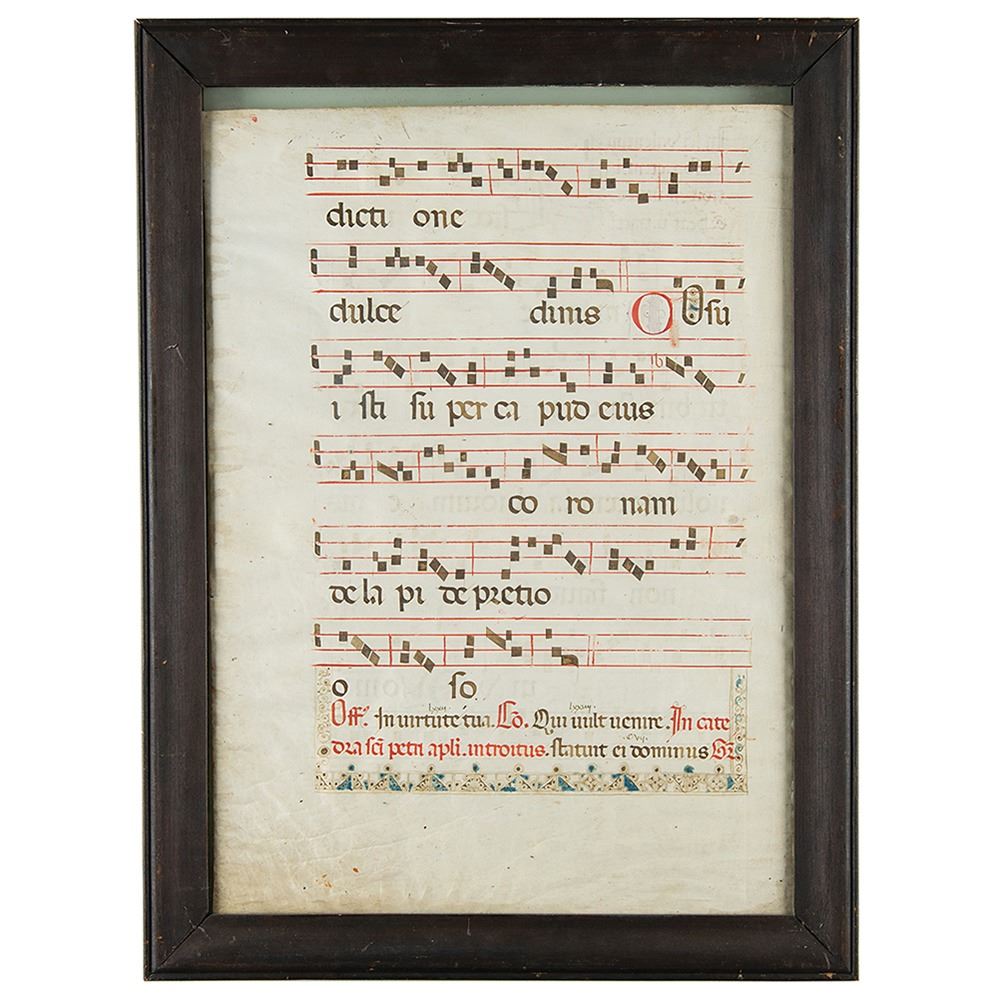 dicti one
dulce dinis O Osu
i sti su per ca put eius
co ro nam
de la pi de pretio
o so
Off. In uirtute tua. Co. Qui uult uenire. In cate
dra sci petri apli. introitus. statuit ei dominus Gr.